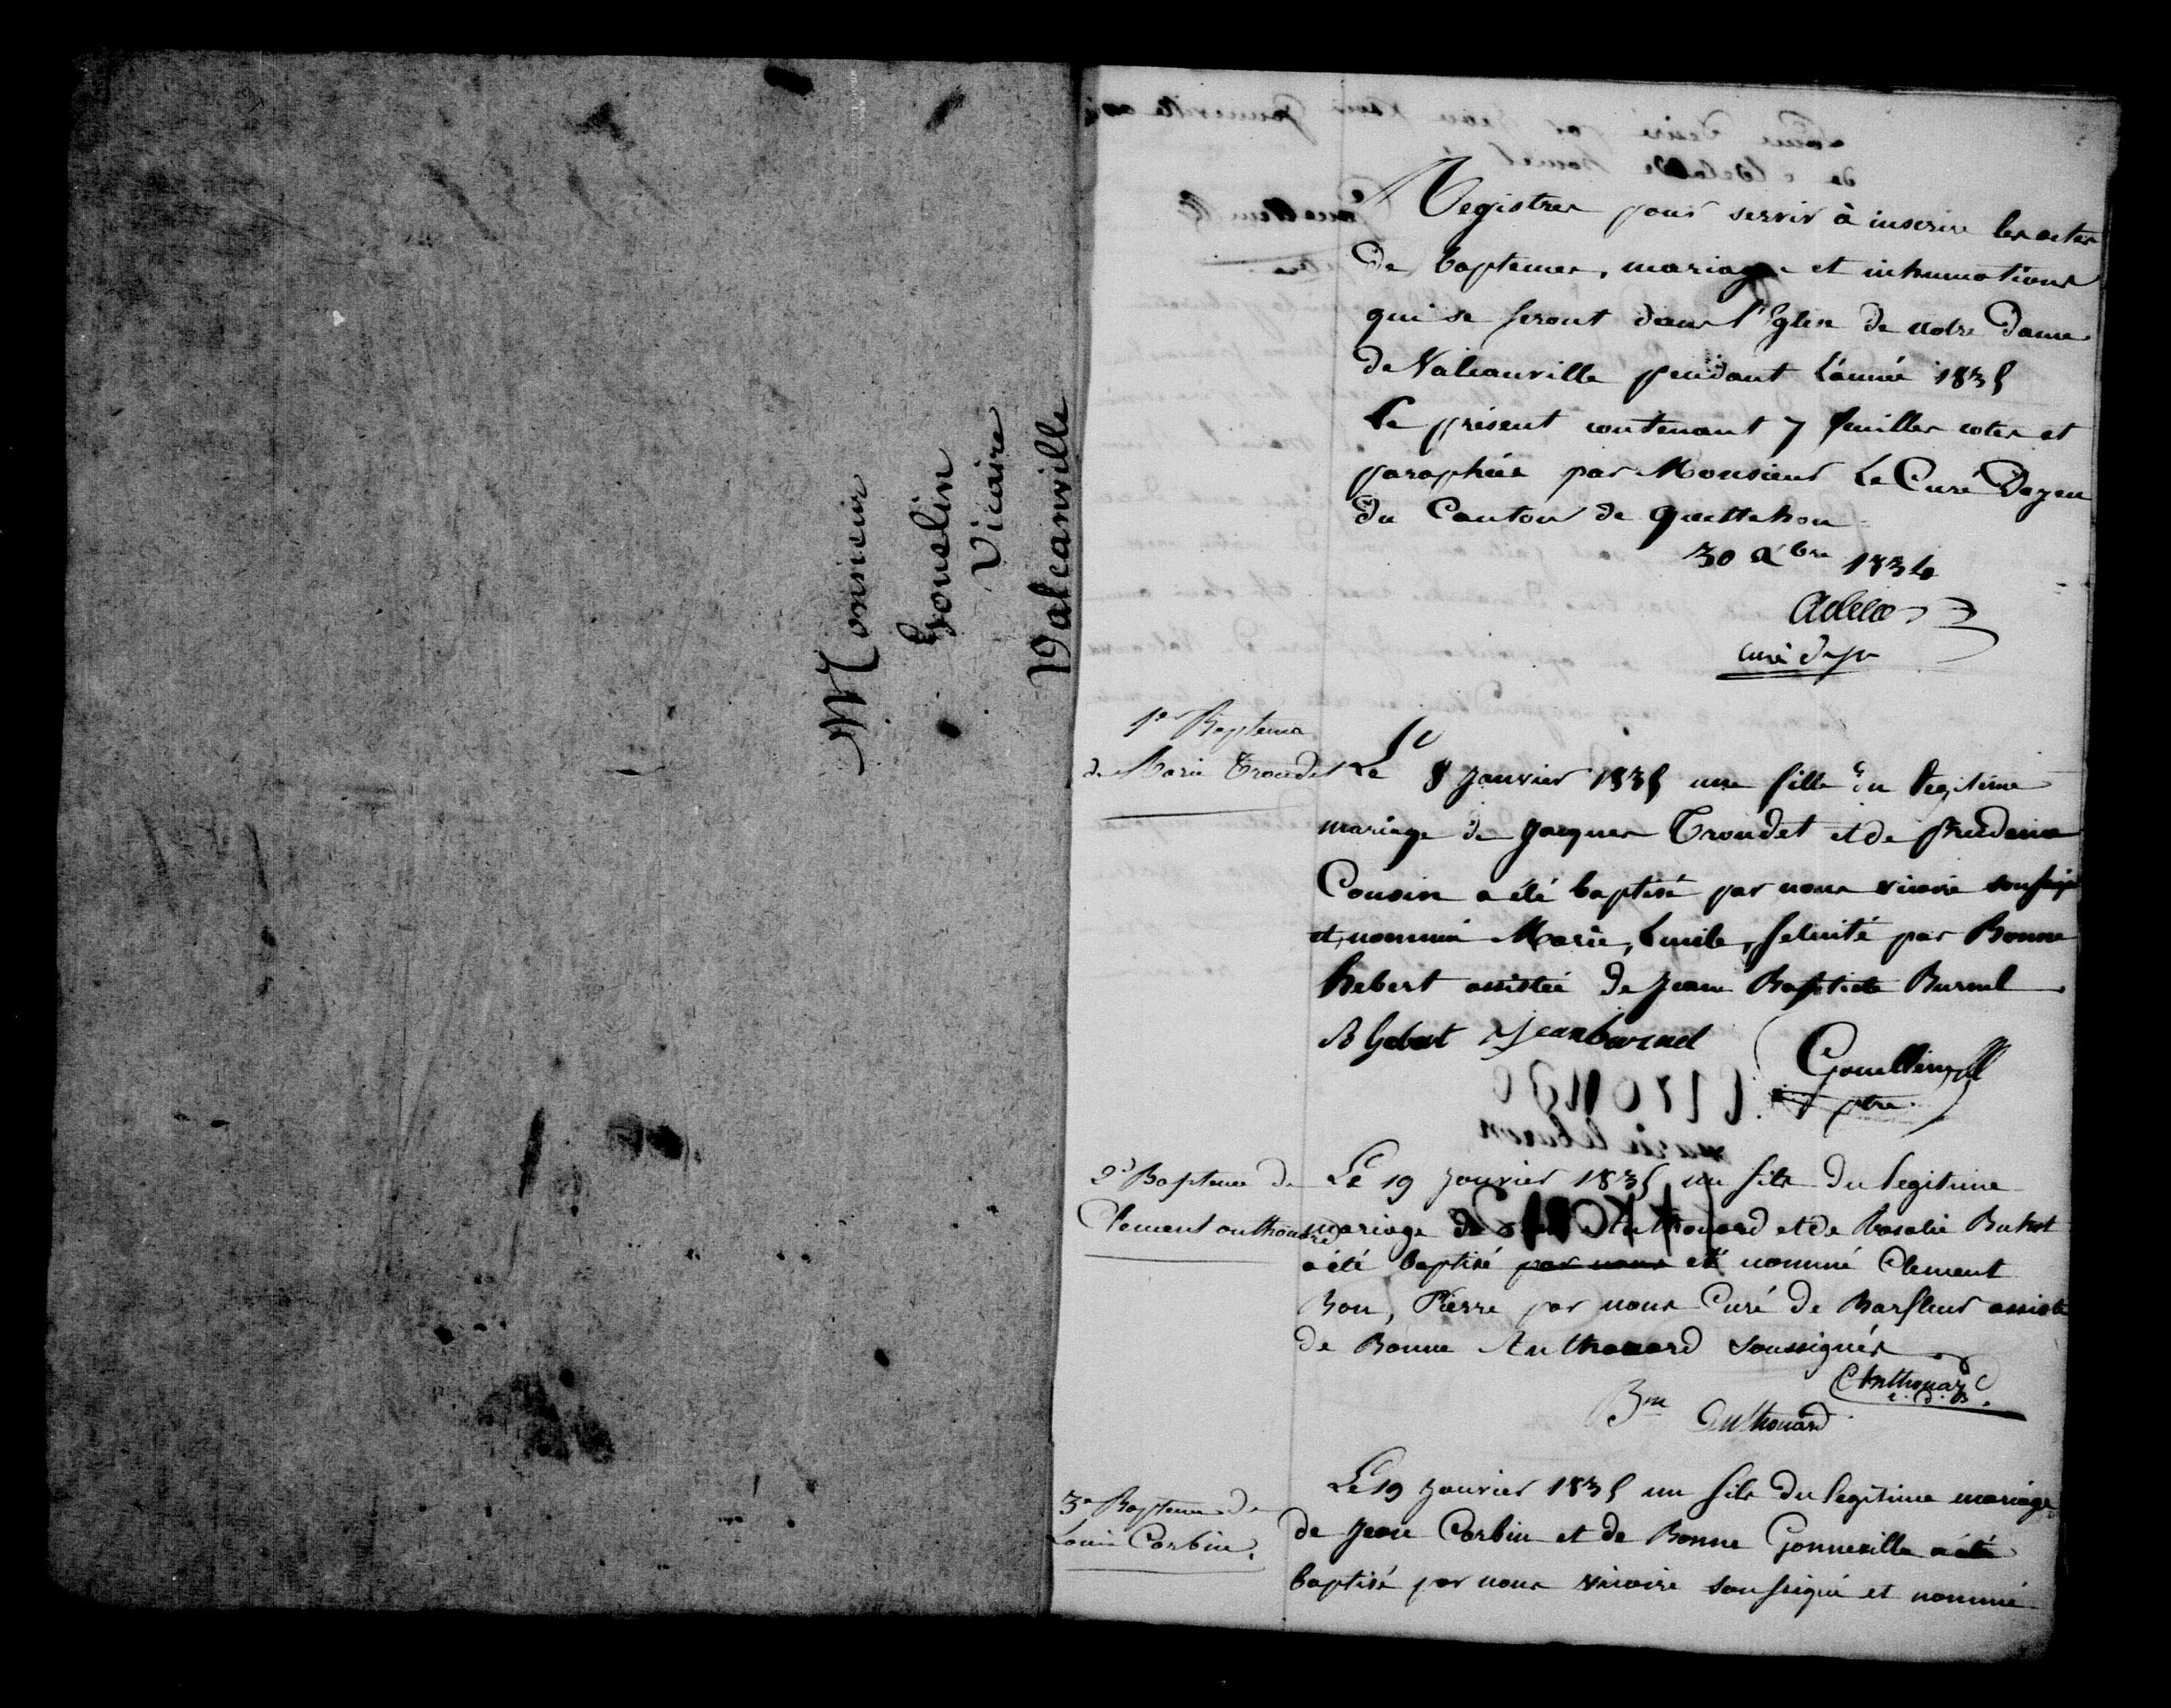 Monsieur
Gouslin
Vicaire
Valcanville
Registres pour servir à inscrire les actes
de baptemes, mariages et inhumations
qui se feront dans l'Eglise de notre Dame
de Valcanville pendant l'année 1835
Le présent contenant 7 feuilles cotés et
paraphées par Monsieur Le Curé Doyen
du Canton de Quettehou
30 Xbre 1834
curé doyen
1er Bapteme
de Marie Troudet
Le 8 Janvier 1835 une fille du legitime
mariage de Jacques Troudet et de Prudence
Cousin a été baptisé par nous vicaire soussigné
et nommé Marie, Emile, felicité par Bonne
hebert assistée de Jean Baptiste Burnel
B hebert Jean burnel
ptre
2e Bapteme de
Clement anthouard
Le 19 Janvier 1835 un fils du legitime
mariage de Anthouard et de Rosalie Buhot
a été baptisé par nous et nommé Clement
Bon, Pierre par nous Curé de Barfleur assisté
de Bonne Anthouard soussignés
Anthouard
c. d. B.
Bne Anthouard
3e Bapteme de
Louis Corbin.
Le 19 Janvier 1835 un fils du legitime mariage
de Jean Corbin et de Bonne Gonneville a été
baptisé par nous vicaire soussigné et nommé